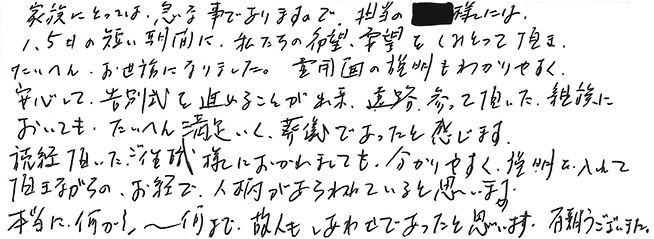 家族にとっては、急な事でありますので、担当の 様には、
1、5日の短い期間に、私たちの希望、要望をくみとって頂き、
たいへん、お世話になりました。費用面の説明もわかりやすく、
安心して、告別式を進めることが出来、遠路、参って頂いた、親族に
おいても、たいへん満足いく、葬儀であったと感じます。
読経頂いたご住職様におかれましても、分かりやすく、説明を入れて
頂きながらの、お経で、人柄があらわれていると思います。
本当に、何から、〜何まで、故人もしあわせであったと思います。有難うございました。